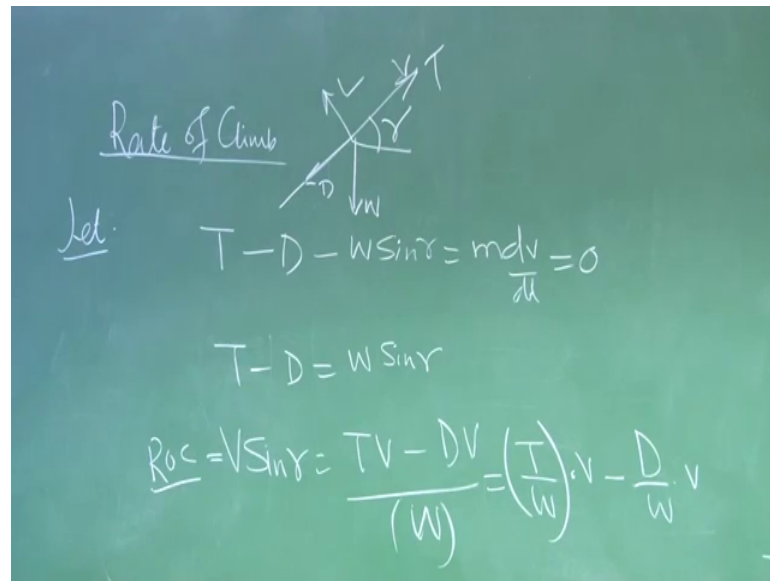 T
V
V
γ
Rate of Climb
-D
W
Jet.
T - D - W Sin γ = m dv/dt = 0
T - D = W Sin γ
ROC = V Sin γ = TV - DV / (W) = (T/W) . V - D/W . V